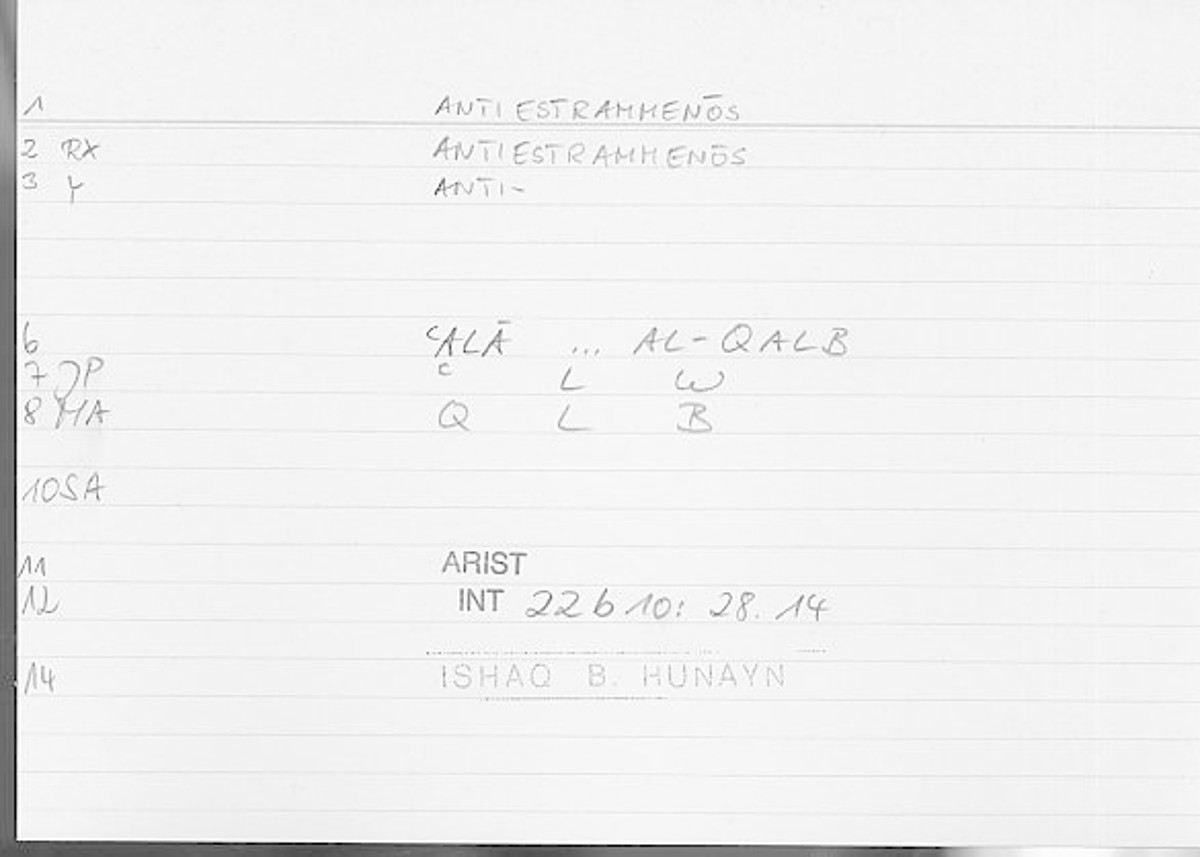 1 ANTIESTRAMMENŌS
2 RX ANTIESTRAMMENŌS
3 Y ANTI-
6 ʿALĀ ... AL-QALB
7 JP ʿ L W
8 MA Q L B
10 SA
11 ARIST
12 INT 22b10: 28.14
14 ISHAQ B. HUNAYN